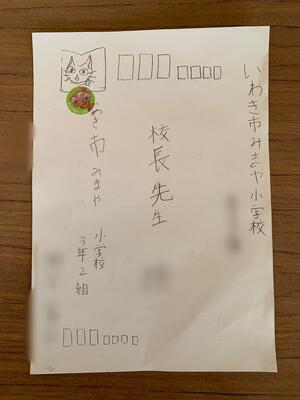 いわき市みまや小学校
校長先生
き市みまや
小学校
3年2組